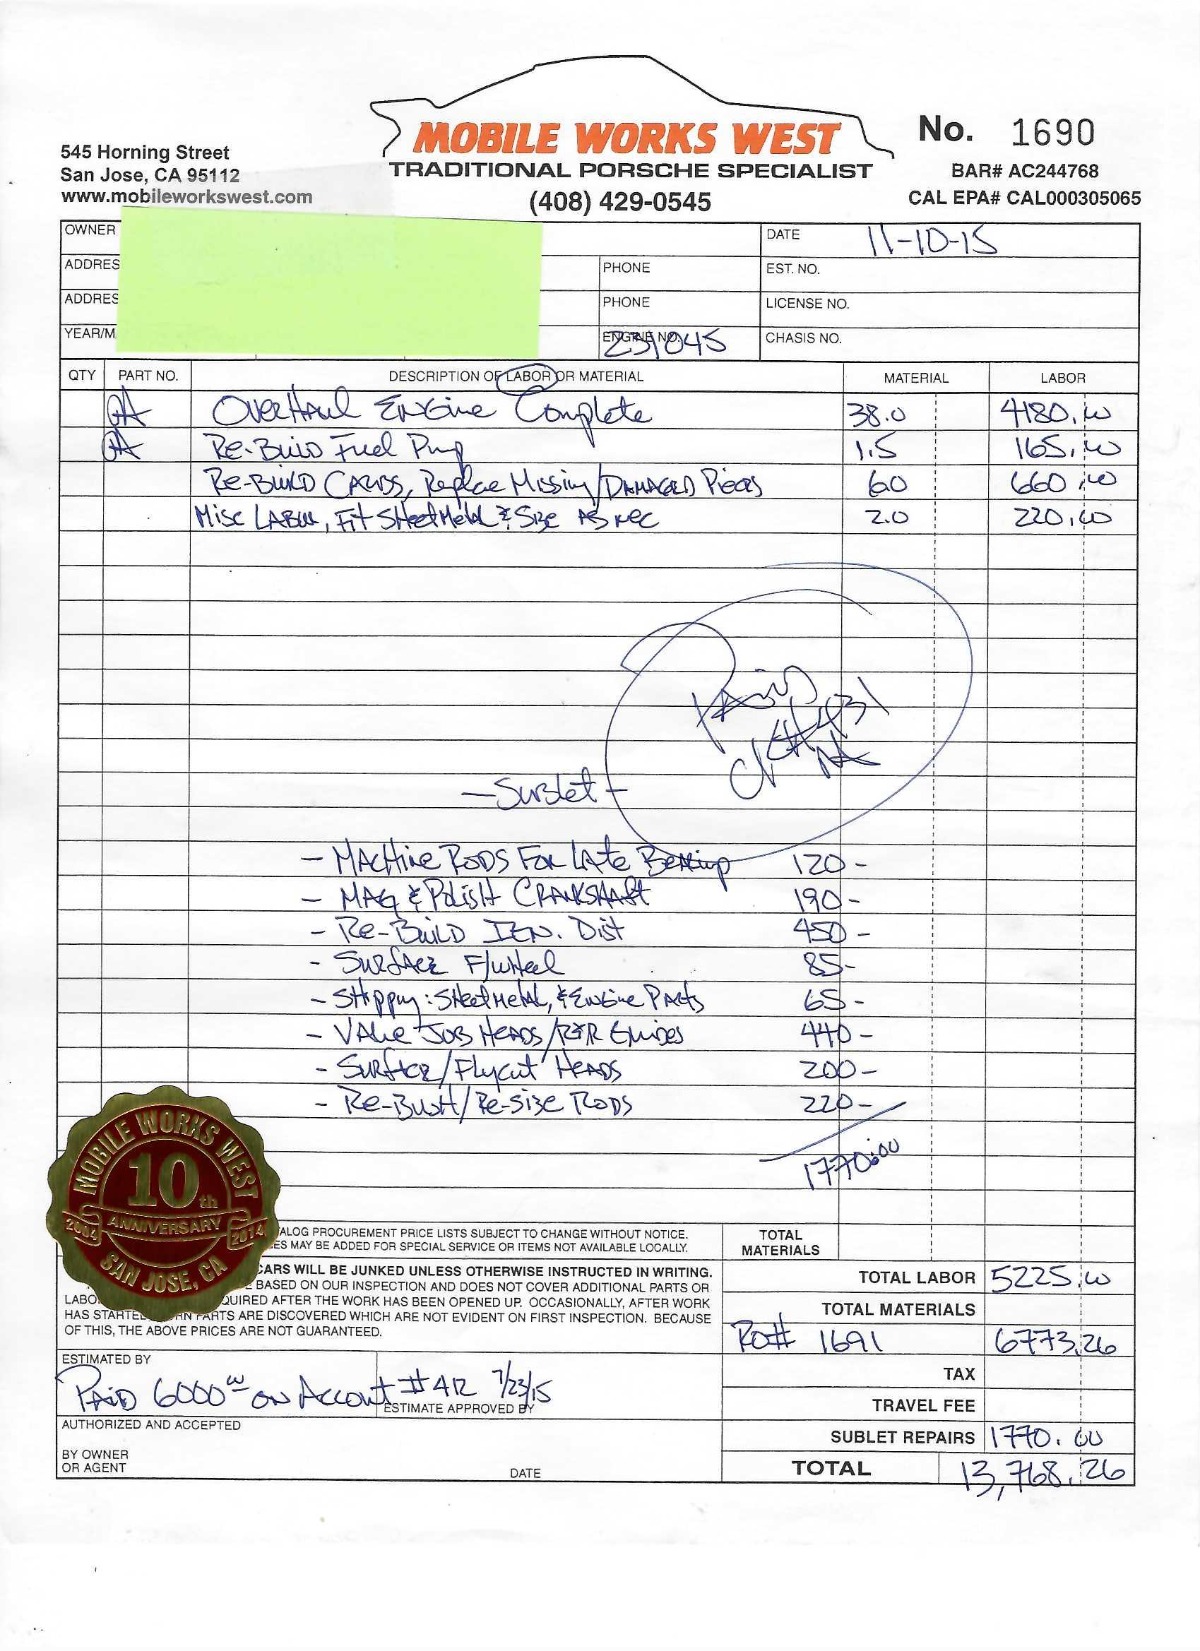 MOBILE WORKS WEST
TRADITIONAL PORSCHE SPECIALIST
(408) 429-0545
545 Horning Street
San Jose, CA 95112
www.mobileworkswest.com
No. 1690
BAR# AC244768
CAL EPA# CAL000305065
OWNER
DATE 11-10-15
ADDRES
PHONE
EST. NO.
ADDRES
PHONE
LICENSE NO.
YEAR/M
ENGINE NO. 231045
CHASIS NO.
QTY PART NO. DESCRIPTION OF LABOR OR MATERIAL MATERIAL LABOR
Overhaul Engine Complete 38.0 4180.00
Re-Build Fuel Pump 1.5 165.00
Re-Build Carbs, Replace Missing/Damaged Pieces 6.0 660.00
Misc Labor, Fit Sheetmetal & Size as nec 2.0 220.00
Paid
- Sublet -
- Machine Rods For Late Bearing 120-
- Mag & Polish Crankshaft 190-
- Re-Build Ign. Dist 450-
- Surface Flywheel 85-
- Shipping: Sheetmetal, & Engine Parts 65-
- Valve Job Heads/R&R Guides 440-
- Surface/Flycut Heads 200-
- Re-Bush/Re-Size Rods 220-
1770.00
MOBILE WORKS WEST
10th
ANNIVERSARY
2004 2014
SAN JOSE, CA
ALOG PROCUREMENT PRICE LISTS SUBJECT TO CHANGE WITHOUT NOTICE.
ES MAY BE ADDED FOR SPECIAL SERVICE OR ITEMS NOT AVAILABLE LOCALLY.
TOTAL MATERIALS
CARS WILL BE JUNKED UNLESS OTHERWISE INSTRUCTED IN WRITING.
BASED ON OUR INSPECTION AND DOES NOT COVER ADDITIONAL PARTS OR
LABO QUIRED AFTER THE WORK HAS BEEN OPENED UP. OCCASIONALLY, AFTER WORK
HAS STARTE RN PARTS ARE DISCOVERED WHICH ARE NOT EVIDENT ON FIRST INSPECTION. BECAUSE
OF THIS, THE ABOVE PRICES ARE NOT GUARANTEED.
TOTAL LABOR 5225.00
TOTAL MATERIALS
Ro# 1691 6773.26
ESTIMATED BY
Paid 6000.00 on Account #412 7/23/15
ESTIMATE APPROVED BY
TAX
TRAVEL FEE
AUTHORIZED AND ACCEPTED
SUBLET REPAIRS 1770.00
BY OWNER
OR AGENT
DATE
TOTAL 13,768.26